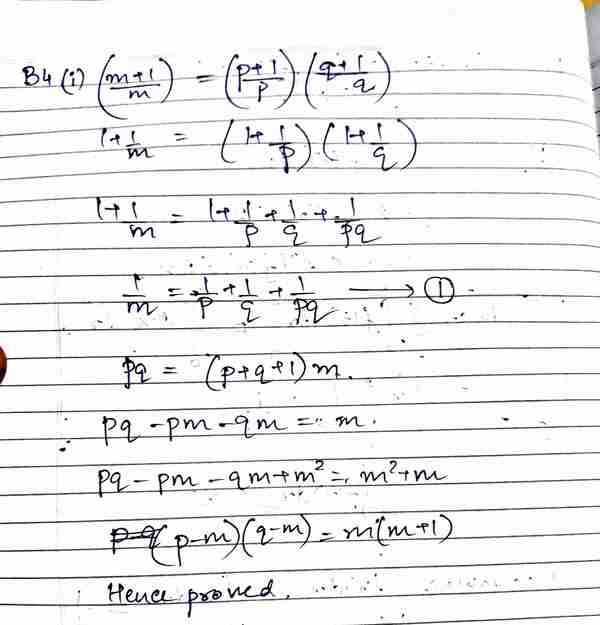 B4 (i) (m+1/m) = (p+1/p) (q+1/q)
1+1/m = (1+1/p) (1+1/q)
1+1/m = 1+1/p+1/q+1/pq
1/m = 1/p+1/q+1/pq → ①
pq = (p+q+1)m.
pq-pm-qm = m.
pq-pm-qm+m² = m²+m
(p-m)(q-m) = m(m+1)
Hence proved.